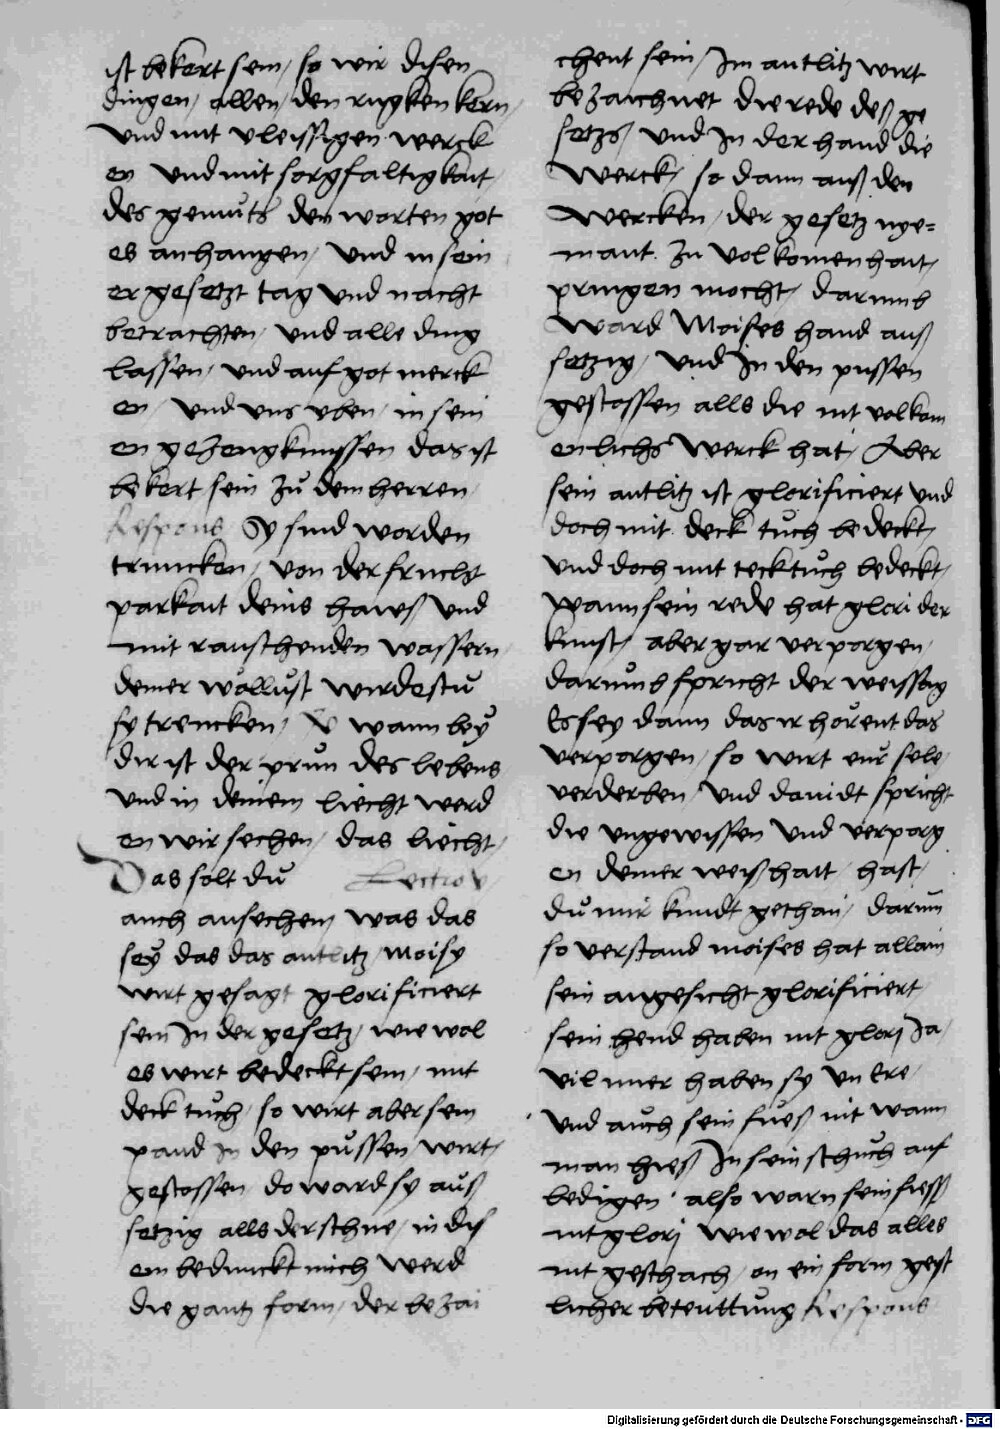 ist bekert sein / so wir disen
dingen / allen / den rugken kern /
vnd mit vleissigen werck
en vnd mit sorgfaltigkait /
des gemüts den worten got
es anhangen / vnd in sein
er gesetzt tag vnd nacht
betrachten / vnd alle ding
lassen / vnd auf got merck
en / vnd vns vben / in sein
en gezeugknussen das ist
bekert sein zů dem herren /
Respons Sy sind worden
truncken / von der frucht
parkait deins hawß vnd
mit rauschenden wassern /
deiner wollust wirdestu
sy trencken / V wann bey
dir ist der prun des lebens /
vnd in deinem liecht werd
en wir sechen / das liecht /
Das solt du Lectio v /
auch ansechen was das
sey das das antlitz Moisy
wirt gesagt glorificiert
sein In der gesetz / wie wol
es wirt bedeckt sein / mit
deck tuch / so wirt aber sein
hand In den pussen / wirt /
gestossen do ward sy auß
setzig alls der schne / in dis
em bedunckt mich werd
die gantz form / der bezai
chent sein / Im antlitz wirt
bezaichnet die rede deß ge
setzs / vnd In der hand die
werck / so dann auß den
wercken / der gesetz nye=
mant zu volkomenhait /
pringen mocht / darumb
ward Moises hand auß
setzig / vnd In den pussen
gestossen alls die nit volkom
enlichs werck hat / Aber
sein antlitz ist glorificiert vnd
doch mit deck tuch bedeckt /
vnd doch mit tecktuch bedeckt /
wann sein rede hat glori der
kunst / aber gar verporgen /
darumb spricht der weissag
Es sey dann das ir hörent das
verporgen / so wirt eur sele /
verderben / vnd dauidt spricht
die vngewissen vnd verporg
en deiner weißhait / hast /
du mir kundt gethan / darum
so verstand moises hat allain
sein angesicht glorificiert /
sein hend haben nit glorj Ja /
vil mer haben sy vn Ere /
vnd auch sein fueß nit wann
man hieß In sein schuch auf
bedigen / also warn sein fueß
nit glorj wie wol das alles
nit geschach / on ein form gest
licher beteuttung Respons